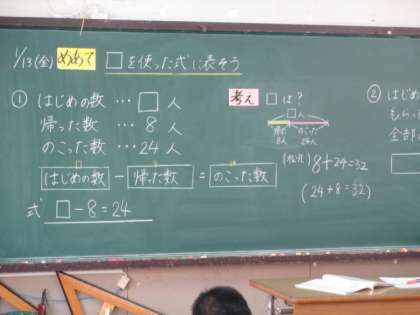 1/13(金) めあて □を使った式に表そう
① はじめの数 … □人
帰った数 … 8人
のこった数 … 24人
はじめの数 - 帰った数 = のこった数
式 □-8=24
考え □は?
□人
帰った のこった
8人 24人
8+24=32
(24+8=32)
② はじめ
もらっ
全部